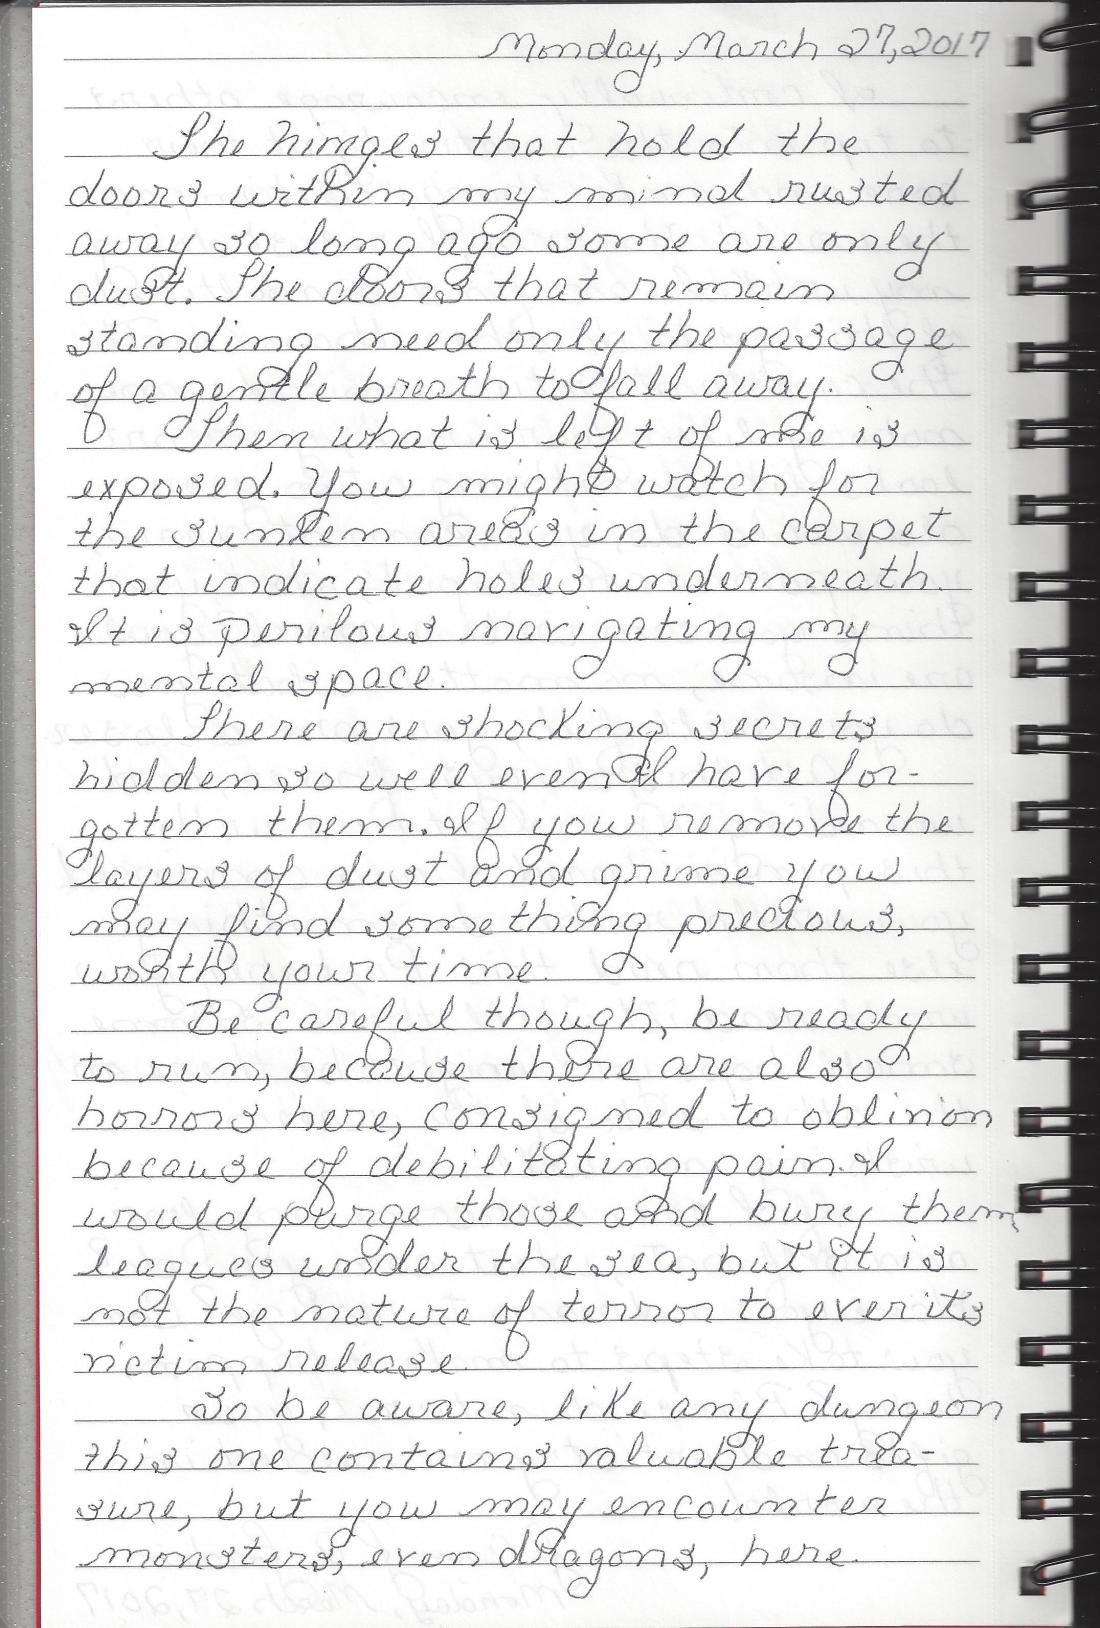 Monday, March 27, 2017
The hinges that hold the
doors within my mind rusted
away so long ago some are only
dust. The doors that remain
standing need only the passage
of a gentle breath to fall away.
Then what is left of me is
exposed. You might watch for
the sunken areas in the carpet
that indicate holes underneath.
It is perilous navigating my
mental space.
There are shocking secrets
hidden so well even I have for-
gotten them. If you remove the
layers of dust and grime you
may find something precious,
worth your time.
Be careful though, be ready
to run, because there are also
horrors here, consigned to oblivion
because of debilitating pain. I
would purge those and bury them
leagues under the sea, but it is
not the nature of terror to ever its
victim release.
So be aware, like any dungeon
this one contains valuable trea-
sure, but you may encounter
monsters, even dragons, here.